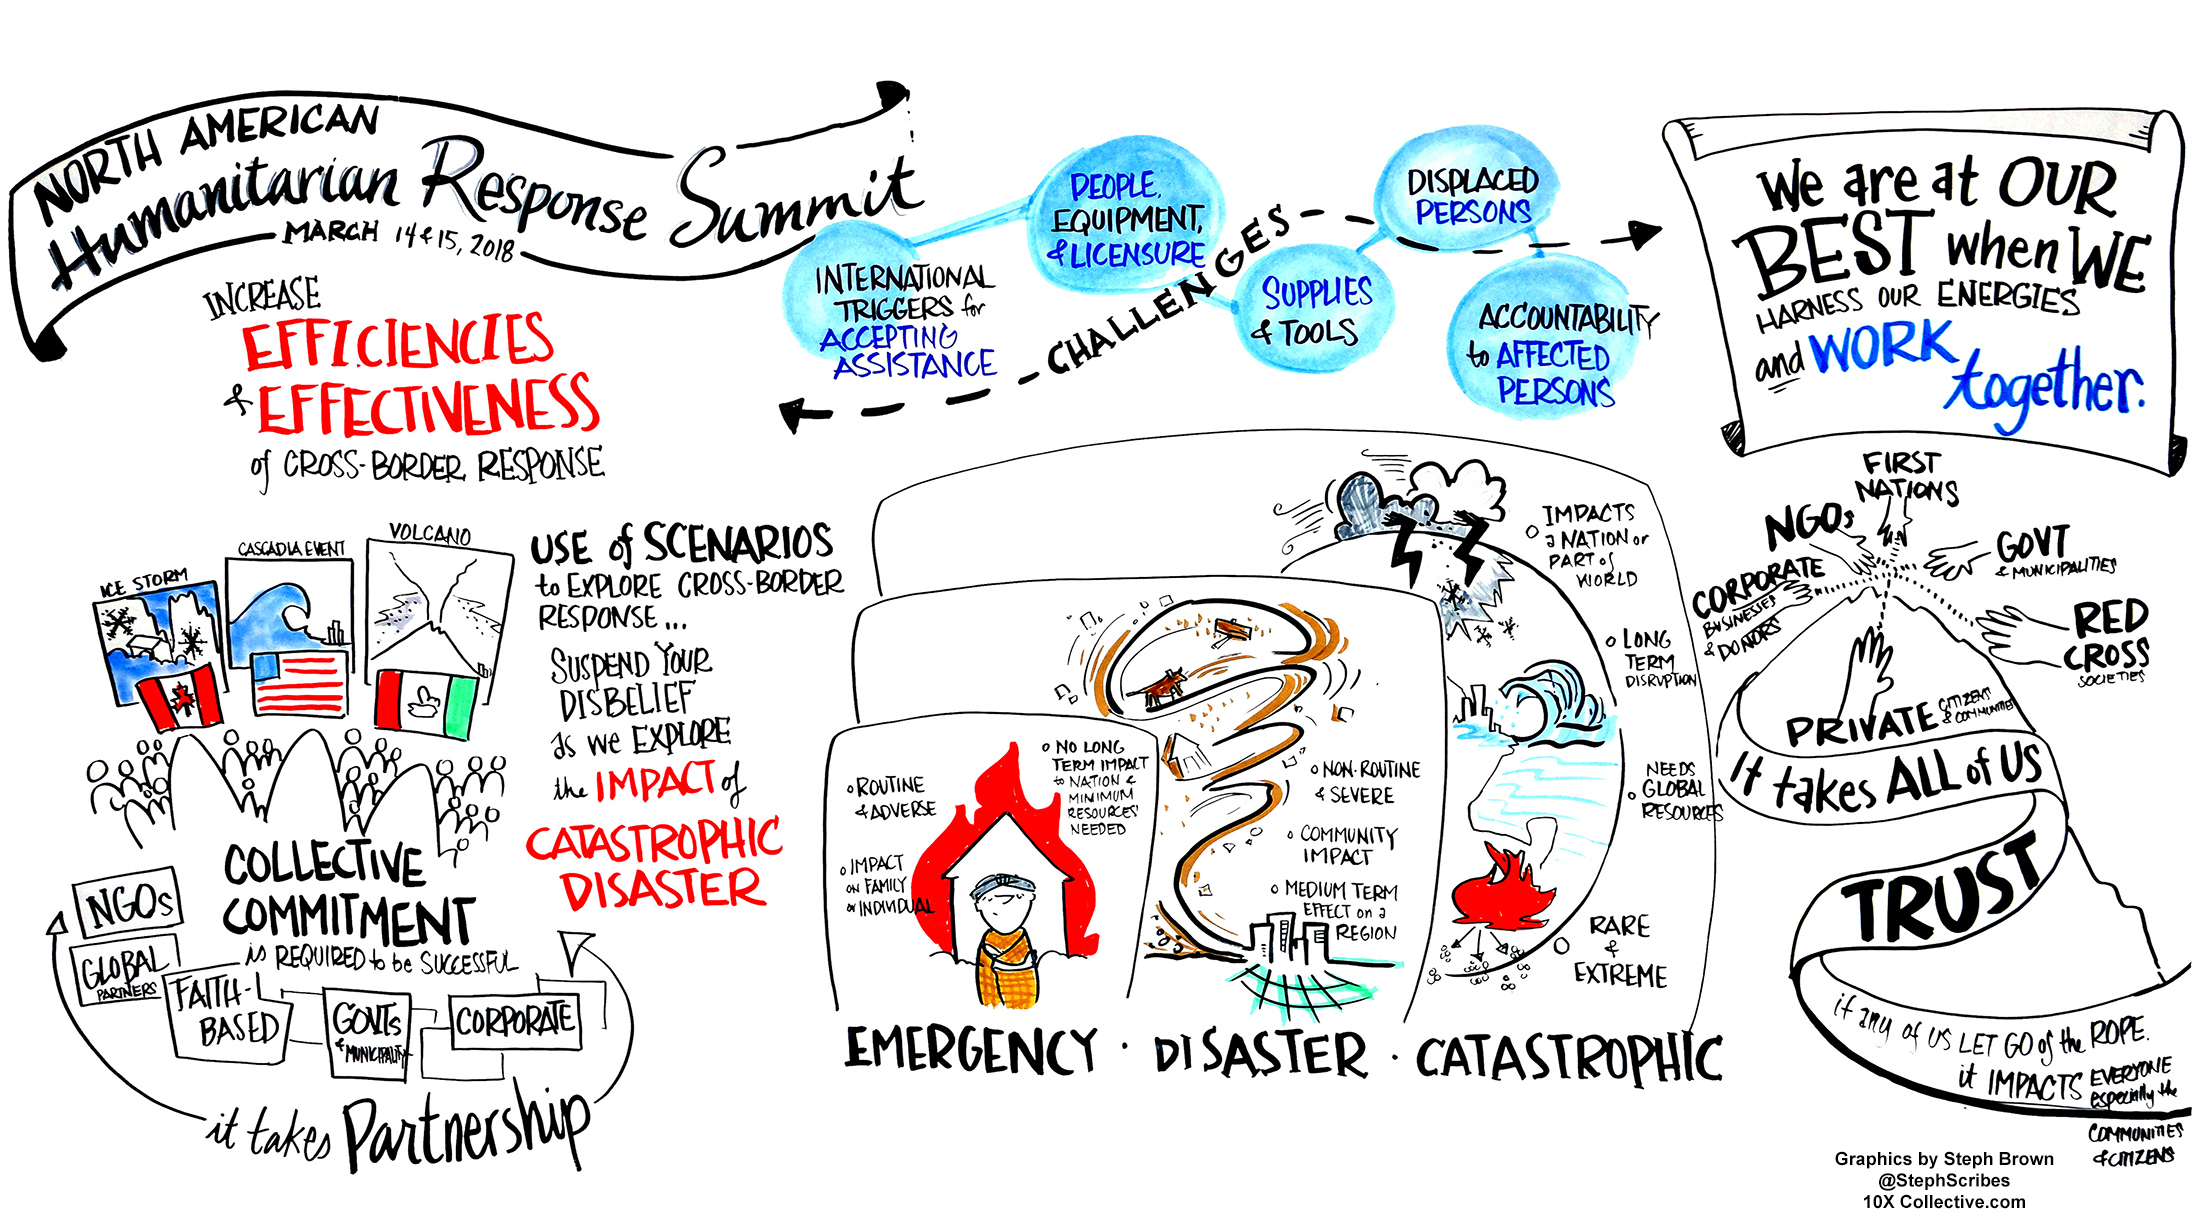 NORTH AMERICAN
Humanitarian Response Summit
MARCH 14 & 15, 2018
INCREASE
EFFICIENCIES
& EFFECTIVENESS
of CROSS-BORDER RESPONSE
ICE STORM
CASCADIA EVENT
VOLCANO
USE of SCENARIOS
to EXPLORE CROSS-BORDER
RESPONSE...
SUSPEND YOUR
DISBELIEF
as we EXPLORE
the IMPACT of
CATASTROPHIC
DISASTER
COLLECTIVE
COMMITMENT
is REQUIRED to be SUCCESSFUL
NGOs
GLOBAL
PARTNERS
FAITH-
BASED
GOVTs
& MUNICIPALITY
CORPORATE
it takes Partnership
INTERNATIONAL
TRIGGERS for
ACCEPTING
ASSISTANCE
PEOPLE,
EQUIPMENT,
& LICENSURE
CHALLENGES
SUPPLIES
& TOOLS
DISPLACED
PERSONS
ACCOUNTABILITY
to AFFECTED
PERSONS
ROUTINE
& ADVERSE
IMPACT
on FAMILY
or INDIVIDUAL
NO LONG
TERM IMPACT
to NATION &
MINIMUM
RESOURCES
NEEDED
EMERGENCY
NON-ROUTINE
& SEVERE
COMMUNITY
IMPACT
MEDIUM TERM
EFFECT on a
REGION
· DISASTER ·
IMPACTS
a NATION or
PART of
WORLD
LONG
TERM
DISRUPTION
NEEDS
GLOBAL
RESOURCES
RARE
&
EXTREME
CATASTROPHIC
We are at OUR
BEST when WE
HARNESS OUR ENERGIES
and WORK
together.
FIRST
NATIONS
NGOs
GOVT
& MUNICIPALITIES
CORPORATE
BUSINESSES
& DONORS
RED
CROSS
SOCIETIES
PRIVATE CITIZENS
& COMMUNITIES
It takes ALL of US
TRUST
if any of US LET GO of the ROPE.
it IMPACTS EVERYONE
especially the
COMMUNITIES
& CITIZENS
Graphics by Steph Brown
@StephScribes
10X Collective.com